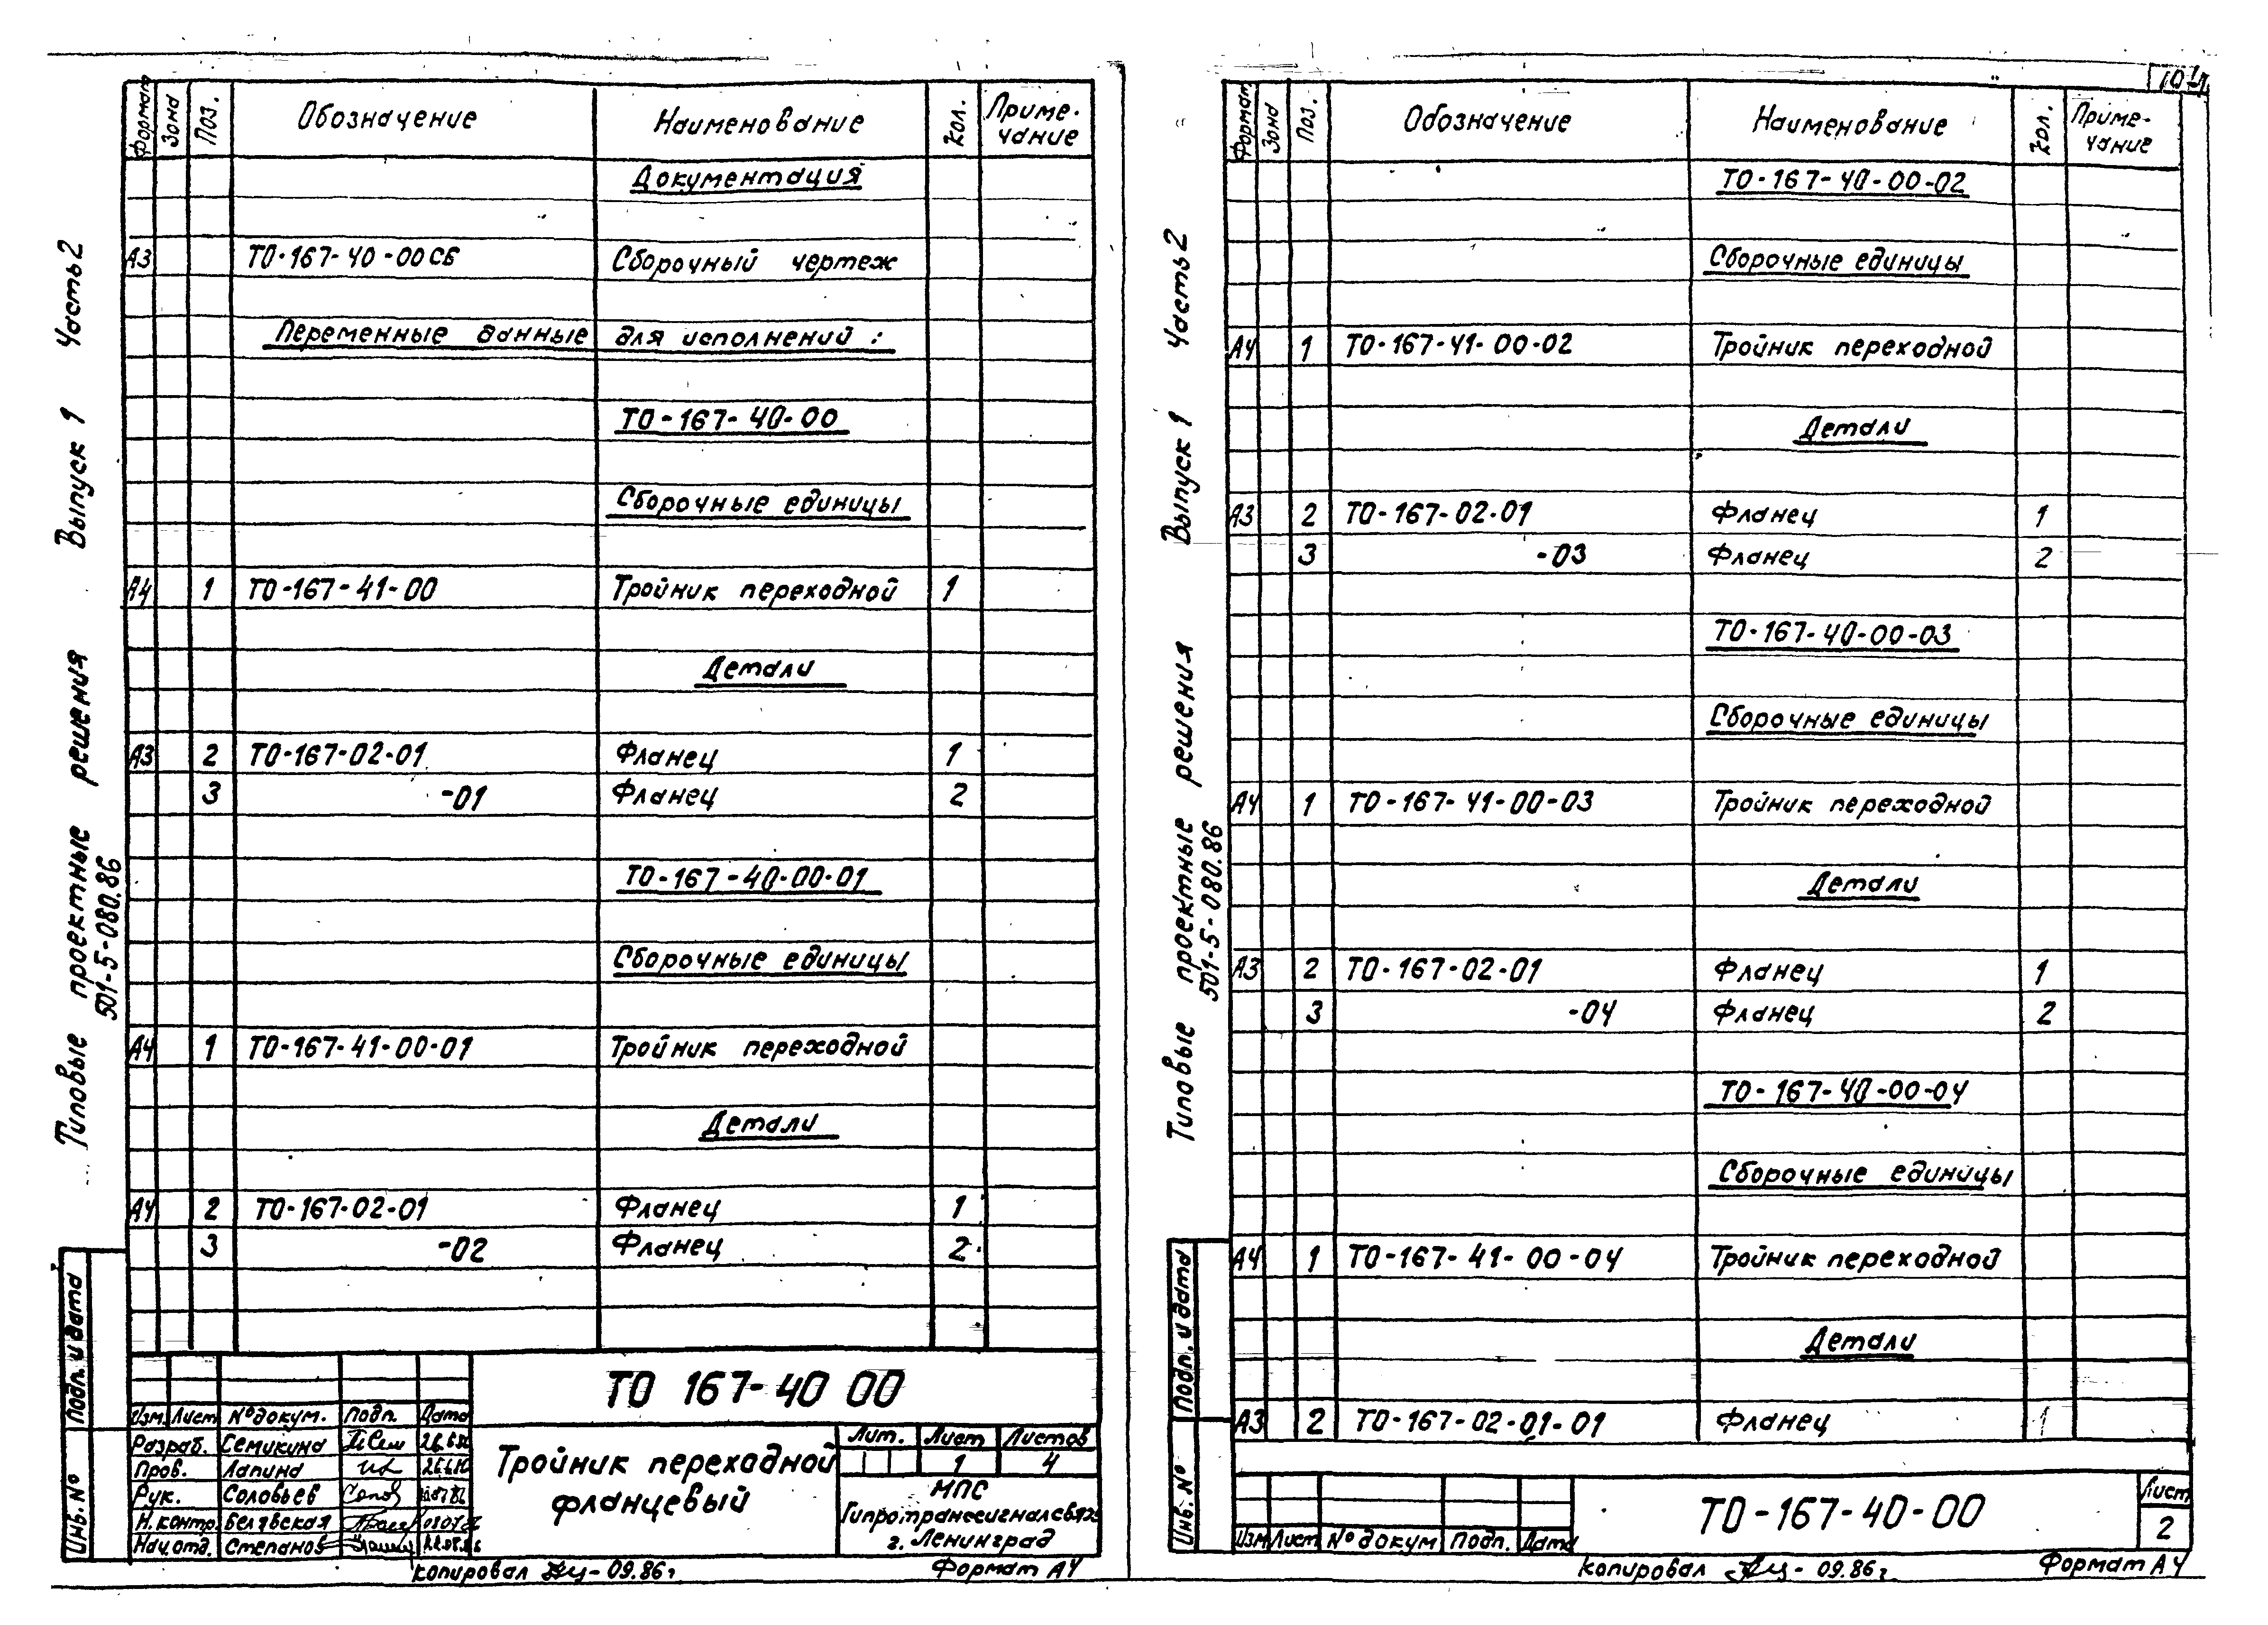 Формат Зона Поз. Обозначение Наименование Кол. Приме-
чание
Документация
А3 ТО-167-40-00СБ Сборочный чертеж
Переменные данные для исполнений :
ТО-167-40-00
Сборочные единицы
А4 1 ТО-167-41-00 Тройник переходной 1
Детали
А3 2 ТО-167-02-01 Фланец 1
3 -01 Фланец 2
ТО-167-40-00-01
Сборочные единицы
А4 1 ТО-167-41-00-01 Тройник переходной
Детали
А4 2 ТО-167-02-01 Фланец 1
3 -02 Фланец 2
Типовые проектные решения Выпуск 1 Часть 2
501-5-080.86
Подп. и дата
Инв. №
ТО 167-40 00
Изм. Лист № докум. Подп. Дата
Разраб. Семикина
Пров. Лапина
Рук. Соловьев
Н.контр. Белявская
Нач.отд. Степанов
Тройник переходной
фланцевый
Лит. Лист Листов
1 4
МПС
Гипротранссигналсвязь
г. Ленинград
Копировал - 09.86г. Формат А4
104
Формат Зона Поз. Обозначение Наименование Кол. Приме-
чание
ТО-167-40-00-02
Сборочные единицы
А4 1 ТО-167-41-00-02 Тройник переходной
Детали
А3 2 ТО-167-02-01 Фланец 1
3 -03 Фланец 2
ТО-167-40-00-03
Сборочные единицы
А4 1 ТО-167-41-00-03 Тройник переходной
Детали
А3 2 ТО-167-02-01 Фланец 1
3 -04 Фланец 2
ТО-167-40-00-04
Сборочные единицы
А4 1 ТО-167-41-00-04 Тройник переходной
Детали
А3 2 ТО-167-02-01-01 Фланец 1
Типовые проектные решения Выпуск 1 Часть 2
501-5-080.86
Подп. и дата
Инв. №
Изм Лист № докум Подп. Дата
ТО-167-40-00
Лист
2
Копировал - 09.86г. Формат А4